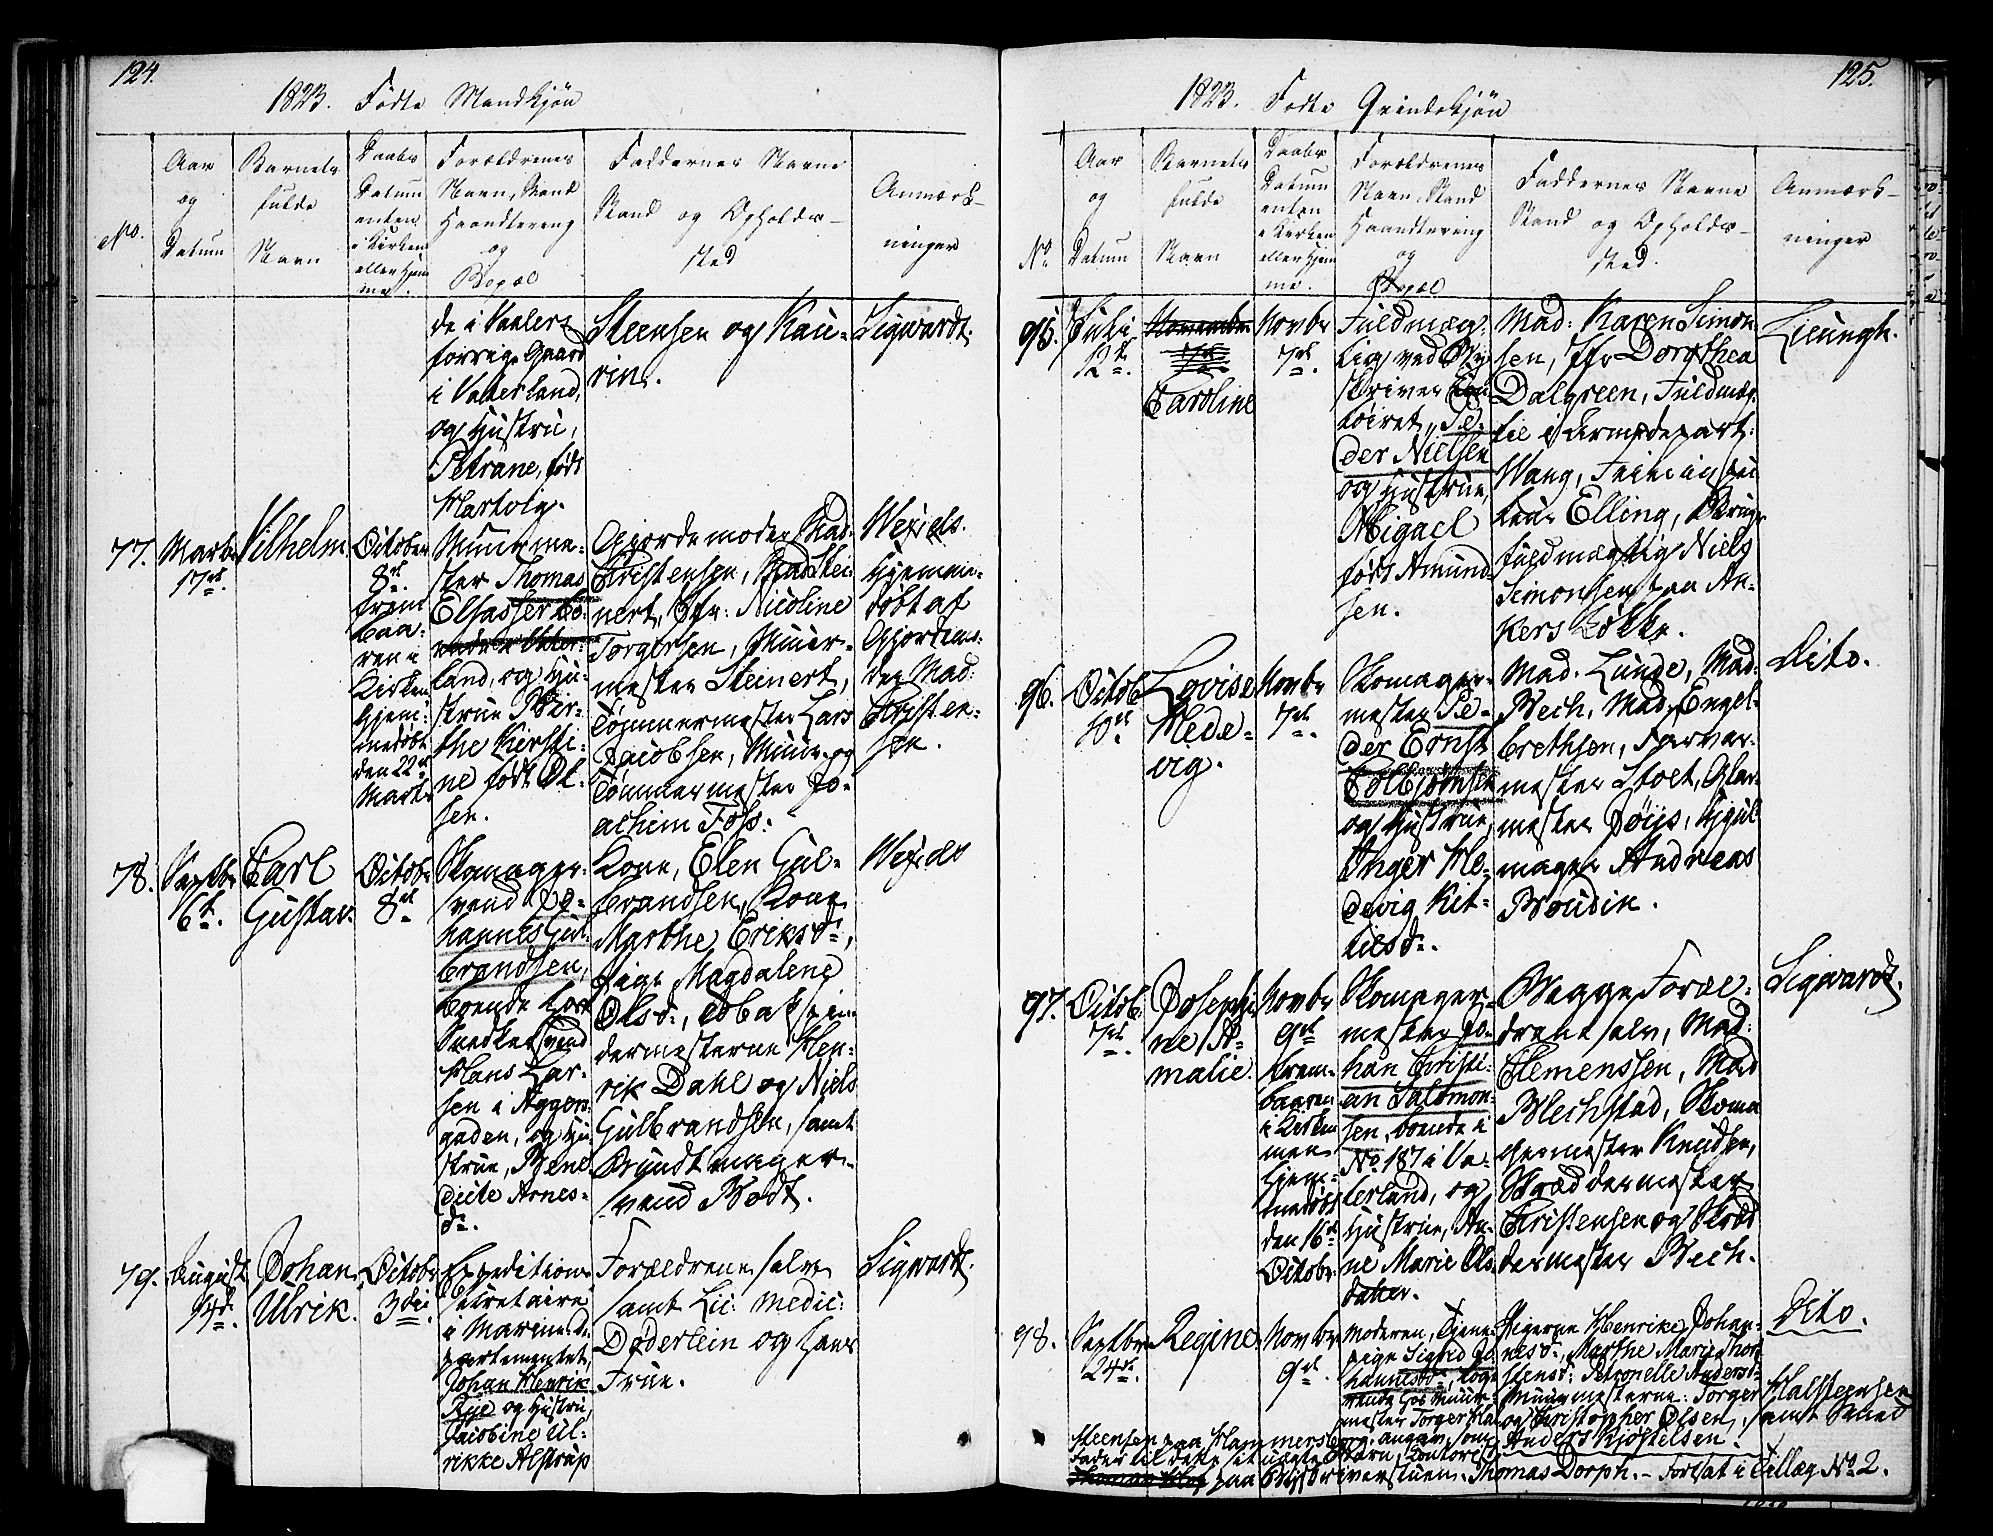 124.
1823. Fødte Mandkjøn
No.
Aar
og
Datum
Barnets
fulde
Navn
Daabs
Datum
enten
i Kirken
eller Hjem
me.
Forældrenes
Navn, Stand
Haandtering
og
Bopæl
Faddernes Navne
Stand og Opholds-
sted
Anmærk-
ninger
de i Vaalers
forrige Gaard
i Vaterland,
og Hustrue,
Petrane, født
Hartvig.
Steensen og Kau-
rin.
Sigwardt.
77.
Marts
17de.
Vilhelm.
October
8de
frem
baa-
ren i
Kirken
hjem-
medøbt
den 22de
Marts
Muurme-
ster Thomas
Elsasser bo-
land, og Hu-
strue Bir-
the Kirsti-
ne født Ol-
sen.
Gjordemoder Mad:
Christensen, Mad Stei-
nert, Jfr: Nicoline
Torgersen, Muur-
mester Steinert,
Tømmermester Lars
Jacobsen, Muur- og
Tømmermester Jo-
achim Foss.
Wexels.
Hjemme-
døbt af
Gjordemo-
der Mad:
Christen-
sen.
78.
Septbr
6te.
Carl
Gustav.
Octobr
8de
Skomager-
svend Jo-
hannes Gul-
brandsen,
boende hos
Snedkersvend
Hans Lar-
sen i Aggers-
gaden, og Hu-
strue, Bene-
dicte Arnes-
dr.
Kone, Elen Gul-
brandsen, Kone
Marthe Eriksdr,
Pige Magdalene
Olsdr, Tobakspin-
dermesterne Hen-
rik Dahl og Niels
Gulbrandsen, samt
Bundtmager-
svend Bodt.
Wexels
79.
August
Johan
Ulrik.
Octobr
3die
Expeditions
secretaire
i Marinede-
partementet,
Johan Henrik
Rye og Hustru,
Jacobine Ul-
rikke Alstrup
Forældrene selv
samt Lic: medic:
Døderlein og hans
Frue.
Sigwardt.
125.
1823. Fødte Qvindekjøn
No.
Aar
og
Datum
Barnets
fulde
Navn
Daabs
Datum
enten
i Kirken
eller Hjem
me.
Forældrenes
Navn, Stand
Haandtering
og
Bopæl
Faddernes Navne
Stand og Opholds-
sted.
Anmærk-
ninger
95.
Juli
12te.
Caroline
Novbr
7de.
Fuldmæg-
tig ved By-
skriver Con
toiret, Pe-
der Nielsen
og Hustrue,
Abigael
født Amund-
sen.
Mad: Karen Simon-
sen, Jfr Dorothea
Dalgreen, Fuldmæg-
tie i Armedepart:
Wang,
Elling, Brugs
fuldmægtig Niels
Simonsen paa An-
kers Løkke.
Lieungh.
96.
Octob
10de.
Lovise
Hede-
vig.
Novbr
7de.
Skomager-
mester Pe-
der Ernst
Tolbjørnsen
og Hustrue,
Inger He-
devig Kit-
tilsdr.
Mad. Lunde, Mad:
Bech, Mad. Engel-
brethsen, Farver-
mester Stoet, Glar-
mester Joijs, Hjul
mager Andreas
Boudin.
Dito.
97.
Octob.
7de.
Josephi-
ne A-
malie.
Novbr
9de
frem-
baaren
i Kirken
men
hjem-
medøbt
den 16de
Octobr.
Skomager-
mester Jo-
han Christi-
an Salomon-
sen, boende i
No. 187 i Va-
terland, og
Hustrue, An-
ne Marie Ols-
datter.
Begge Foræl-
drene selv, Mad:
Clemenssen, Mad
Blechstad, Skoma
germester Knudsen,
Skræddermester
Christensen og Skræd
dermester Bech.
Sigwardt.
98.
Septbr
24de.
Regine.
Novbr
9de.
Moderen, Tjene-
pige Sigrid Jo-
hannesdr,
rende hos Muur-
mester Torger Hal
Pigerne Henrike Johan-
nesdr, Marthe Marie Thor
stensdr. Petronelle Andersdr
Muurmesterne: Torger Halsteensen
og Christopher Olsen, samt Smed
Anders Kjøstelsen.
Dito.
steensen paa Hammersborg, angav som
Fader til dette sit uægte Barn, Contorist
paa Byskriverstuen. Thomas Dorph. – Fortsat i Tillæg No 2.